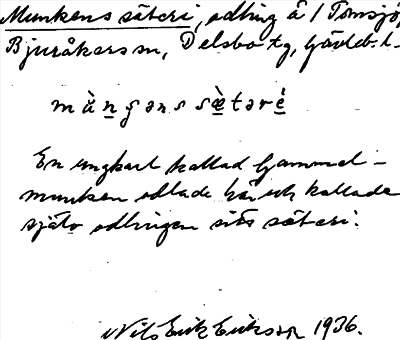 Munkens säteri, odling å / Tomsjö,
Bjuråkers sn, Delsbo tg, Gävleb. l.
mùngəns sæ̀təré
En ungkarl kallad Gammel-
munken odlade här och kallade
själv odlingen sitt säteri.
Nils Erik Eriksson 1936.